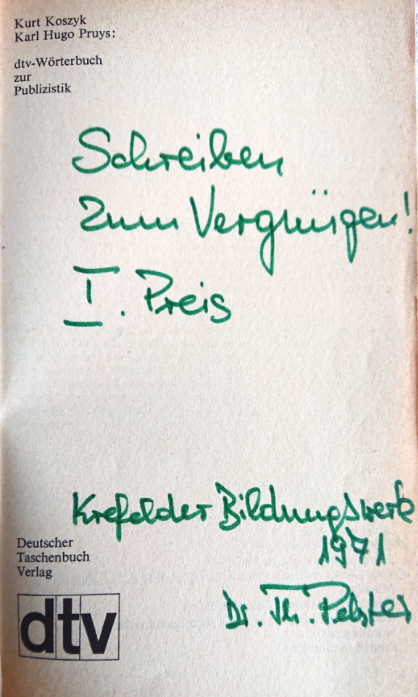 Kurt Koszyk
Karl Hugo Pruys:
dtv-Wörterbuch
zur
Publizistik
Schreiben
zum Vergnügen!
I. Preis
Krefelder Bildungswerk
1971
Dr. Th. Pelster
Deutscher
Taschenbuch
Verlag
dtv